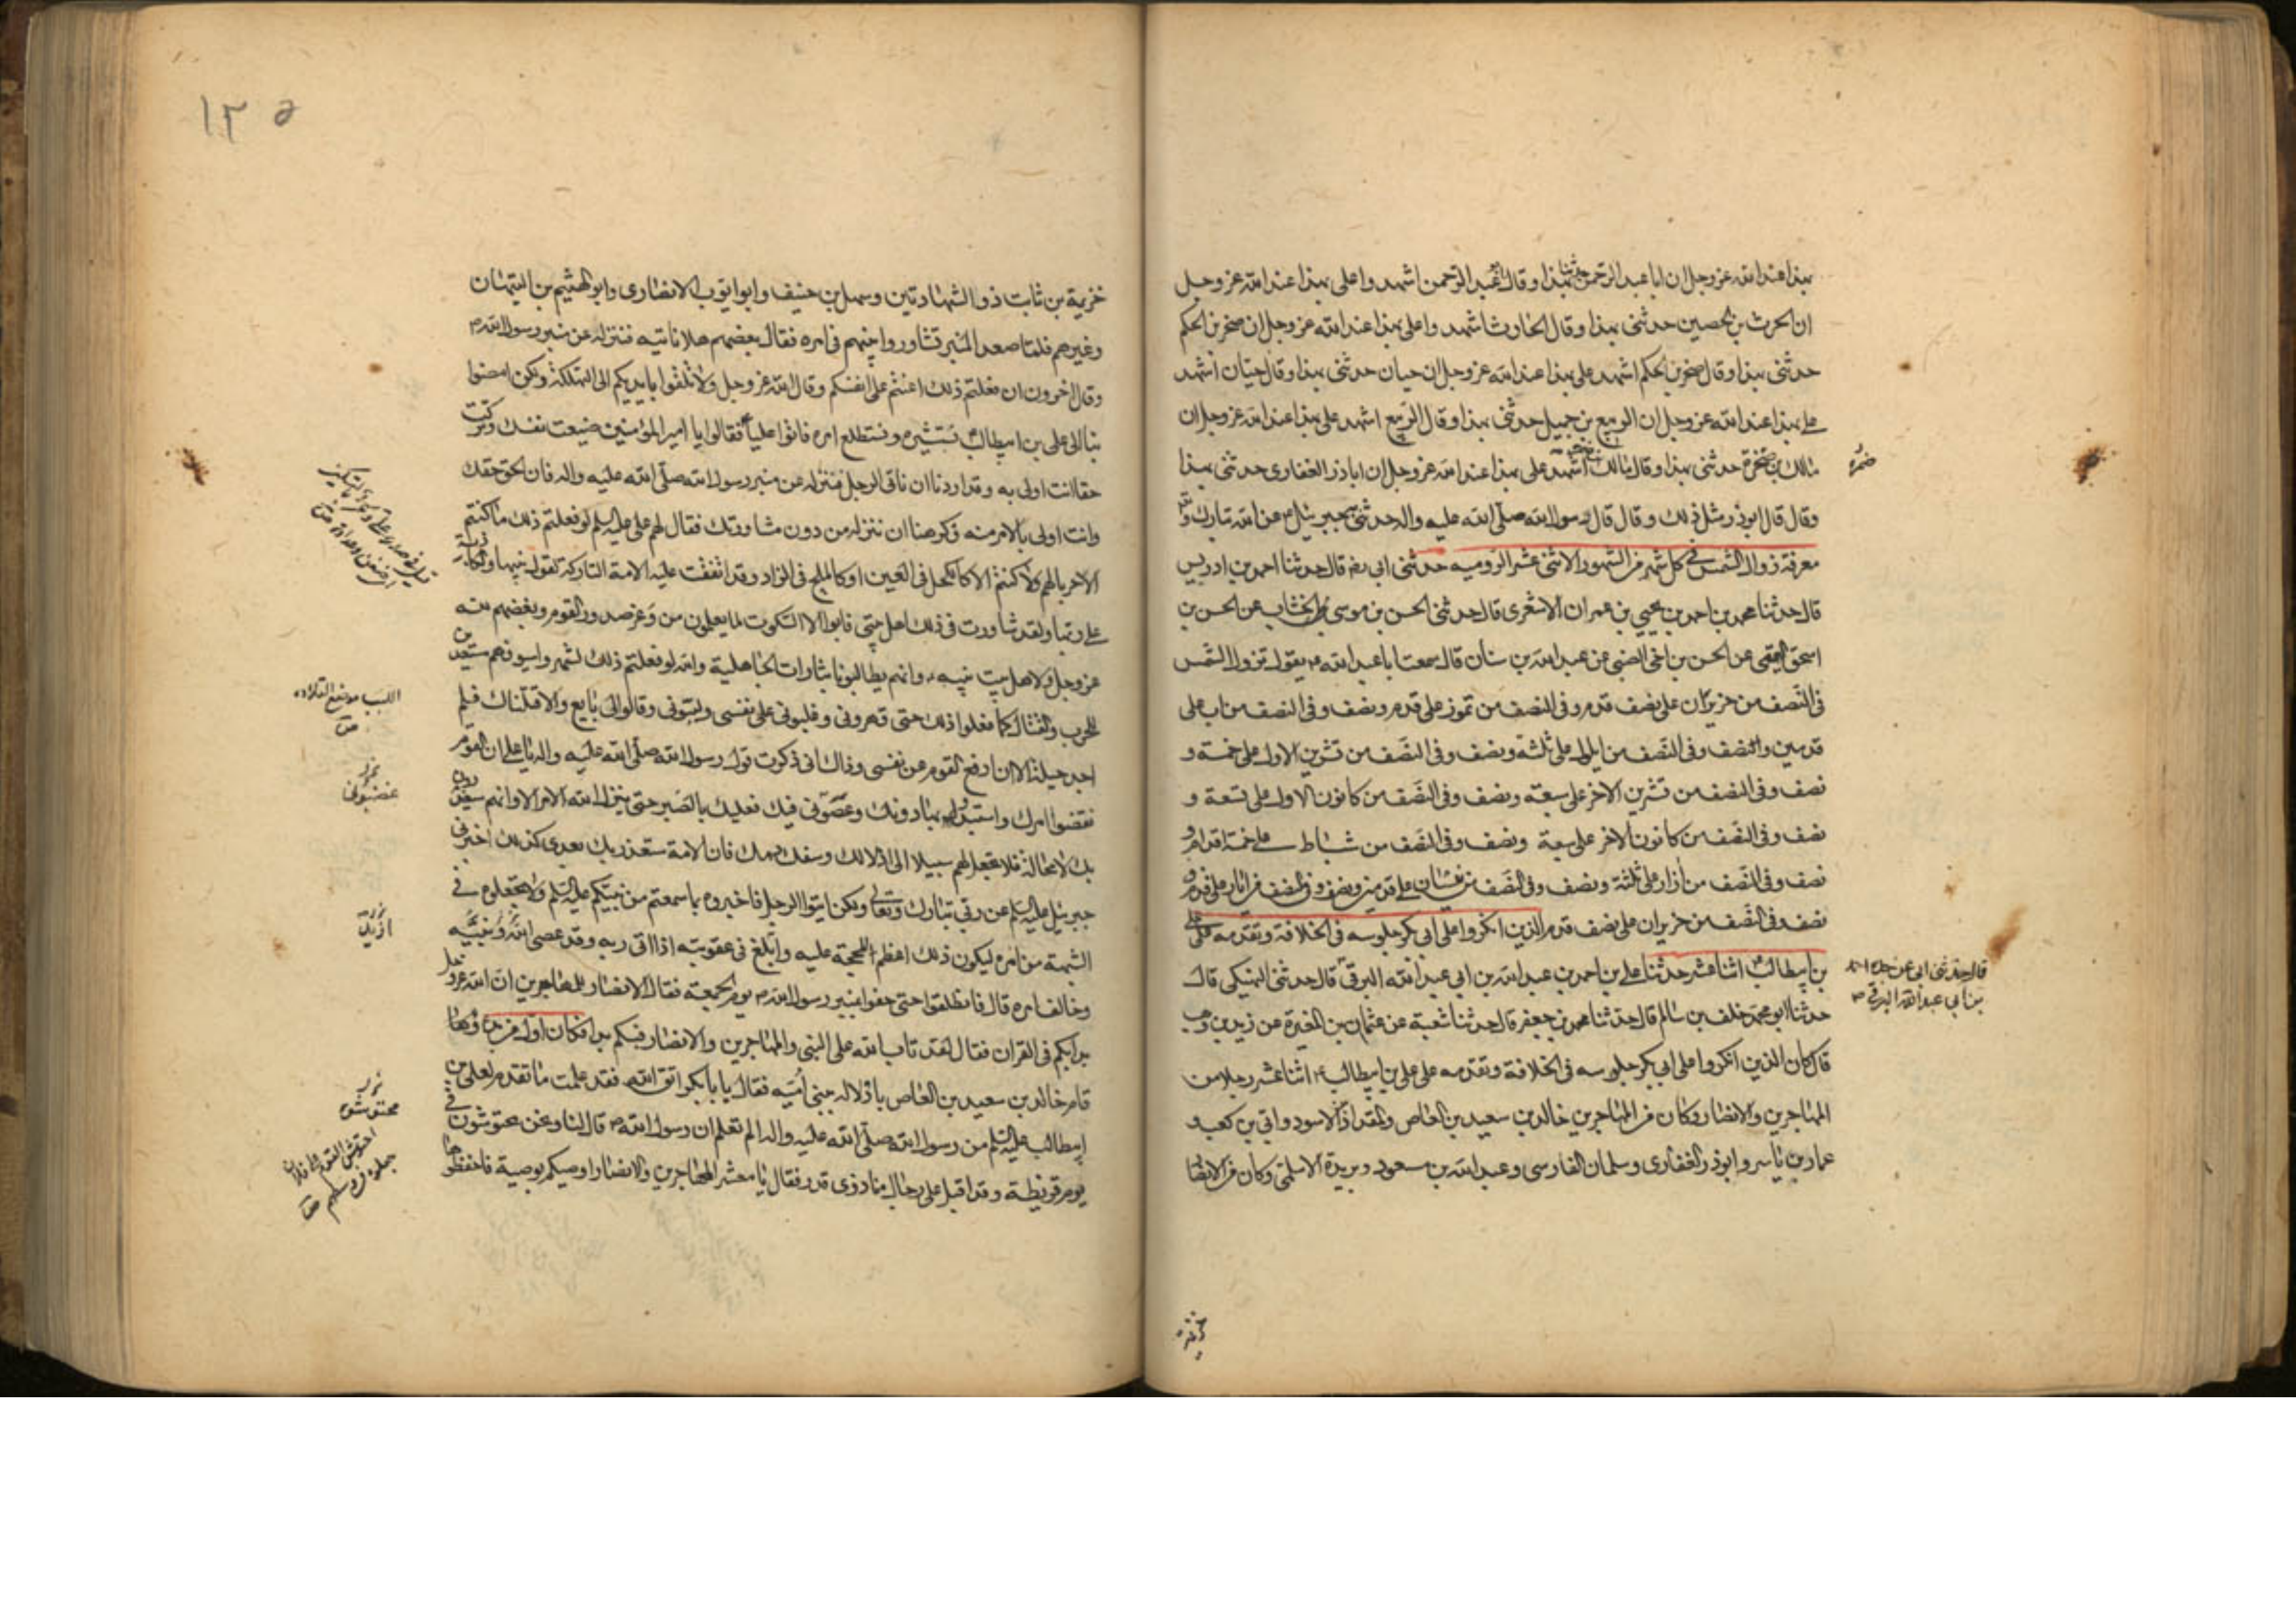 بهذا عند الله عز وجل ان ابا عبد الرحمن حدثنا بهذا وقال عبد الرحمن اشهد وا على بهذا عند الله عز وجل
ان الحرث بن الحصين حدثنى بهذا وقال الحارث اشهد وا على بهذا عند الله عز وجل ان صخر بن الحكم
حدثنى بهذا وقال صخر بن الحكم اشهد على بهذا عند الله عز وجل ان حيان حدثنى بهذا وقال حيان اشهد
على بهذا عند الله عز وجل ان الربيع بن جميل حدثنى بهذا وقال الربيع اشهد على بهذا عند الله عز وجل ان
مالك بن ضمرة حدثنى بهذا وقال مالك اشهد على بهذا عند الله عز وجل ان اباذر الغفارى حدثنى بهذا
ضمرة
وقال قال ابوذر مثل ذلك وقال قال رسول الله صلى الله عليه واله حدثنى به جبرئيل عن الله تبارك و
معرفة زوال الشمس فى كل شهر من الشهور الاثنى عشر الرومية حدثنى ابى رضه قال حدثنا احمد بن ادريس
قال حدثنا محمد بن احمد بن يحيى بن عمران الاشعرى قال حدثنى الحسن بن موسى الخشاب عن الحسن بن
اسحق التميمى عن الحسن بن اخى الضبى عن عبد الله بن سنان قال سمعت ابا عبد الله ع يقول تزول الشمس
فى النصف من حزيران على نصف قدم وفى النصف من تموز على قدم ونصف وفى النصف من اب على
قدمين والنصف وفى النصف من ايلول على ثلثة ونصف وفى النصف من تشرين الاول على خمسة و
نصف وفى النصف من تشرين الاخر على سبعة ونصف وفى النصف من كانون الاول على تسعة و
نصف وفى النصف من كانون الاخر على سبعة ونصف وفى النصف من شباط على خمسة اقدام و
نصف وفى النصف من آزار على ثلثة ونصف وفى النصف من نيسان على قدمين ونصف وفى النصف من ايار على قدم و
نصف وفى النصف من حزيران على نصف قدم الذين انكروا على ابى بكر جلوسه فى الخلافة وتقدمه على على
بن ابيطالب ع اثنا عشر حدثنا على بن احمد بن عبد الله بن ابى عبد الله البرقى قال حدثنى النهيكى قال
قال حدثنى ابى عن جده احمد
بن ابى عبد الله البرقى
حدثنا ابو محمد خلف بن سالم قال حدثنا محمد بن جعفر قال حدثنا شعبة عن عثمان بن المغيرة عن زيد بن وهب
قال كان الذين انكروا على ابى بكر جلوسه فى الخلافة وتقدمه على على بن ابيطالب ع اثنا عشر رجلا من
المهاجرين والانصار وكان من المهاجرين خالد بن سعيد بن العاص والمقداد الاسود وابى بن كعب و
عمار بن ياسر وابوذر الغفارى وسلمان الفارسى وعبد الله بن مسعود وبريدة الاسلمى وكان من الانصار
خزيمة
١٢٥
خزيمة بن ثابت ذو الشهادتين وسهل بن حنيف وابو ايوب الانصارى وابو الهيثم بن التيهان
وغيرهم فلما صعد المنبر تشاوروا بينهم فى امره فقال بعضهم هلا ناتيه فننزله عن منبر رسول الله ص
وقال اخرون ان فعلتم ذلك اعنتم على انفسكم وقال الله عز وجل ولا تلقوا بايديكم الى التهلكة ولكن امضوا
بنا الى على بن ابيطالب ع نستشيره ونستطلع امره فاتوا عليا ع فقالوا يا امير المؤمنين ضيعت نفسك وتركت
حقا انت اولى به وقد اردنا ان ناتى الرجل فننزله عن منبر رسول الله صلى الله عليه واله فان الحق حقك
وانت اولى بالامر منه فكرهنا ان ننزله من دون مشاورتك فقال لهم على عليه السلم لو فعلتم ذلك ما كنتم
الا حربا لهم ولا كنتم الا كالكحل فى العين او كالملح فى الزاد وقد اتفقت عليه الامة التاركة لقول نبيها والكاذبة
على ربها ولقد شاورت فى ذلك اهل بيتى فابوا الا السكوت لما يعلمون من وغر صدور القوم وبغضهم لله
عز وجل ولاهل بيت نبيه وانهم يطالبونا بثارات الجاهلية والله لو فعلتم ذلك لشهروا سيوفهم مستعدين
للحرب والقتال كما فعلوا ذلك حتى قهرونى وغلبونى على نفسى ولببونى وقالوا لى بايع والا قتلناك فلم
اللبب موضع القلادة
اجد حيلة الا ان ادفع القوم عن نفسى وذاك انى ذكرت قول رسول الله صلى الله عليه واله يا على ان القوم
نقضوا امرك واستبدوا بها دونك وعصونى فيك فعليك بالصبر حتى ينزل الله الامر الا وانهم سيغدرون
بك لا محالة فلا تجعل لهم سبيلا الى اذلالك وسفك دمك فان الامة ستغدر بك بعدى كذلك اخبرنى
جبرئيل عليه السلم عن ربى تبارك وتعالى ولكن ايتوا الرجل فاخبروه بما سمعتم من نبيكم عليه السلم ولا تجعلوه فى
الشبهة من امره ليكون ذلك اعظم للحجة عليه وابلغ فى عقوبته اذا اتى ربه وقد عصى الله ونبيه
وخالف امره قال فانطلقوا حتى حفوا بمنبر رسول الله ص يوم الجمعة فقال الانصار للمهاجرين ان الله عز وجل
بدا بكم فى القران فقال لقد تاب الله على النبى والمهاجرين والانصار فبكم بدا فكان اول من بدا وقام
قام خالد بن سعيد بن العاص بادلاله ببنى امية فقال يا ابا بكر اتق الله فقد علمت ما تقدم لعلى بن
ابيطالب عليه السلم من رسول الله صلى الله عليه واله الم تعلم ان رسول الله ص قال لنا ونحن محتوشون فى
محتوشوه
يوم قريظة وقد اقبل على رجال منا ذوى قدر فقال يا معشر المهاجرين والانصار اوصيكم بوصية فاحفظوها